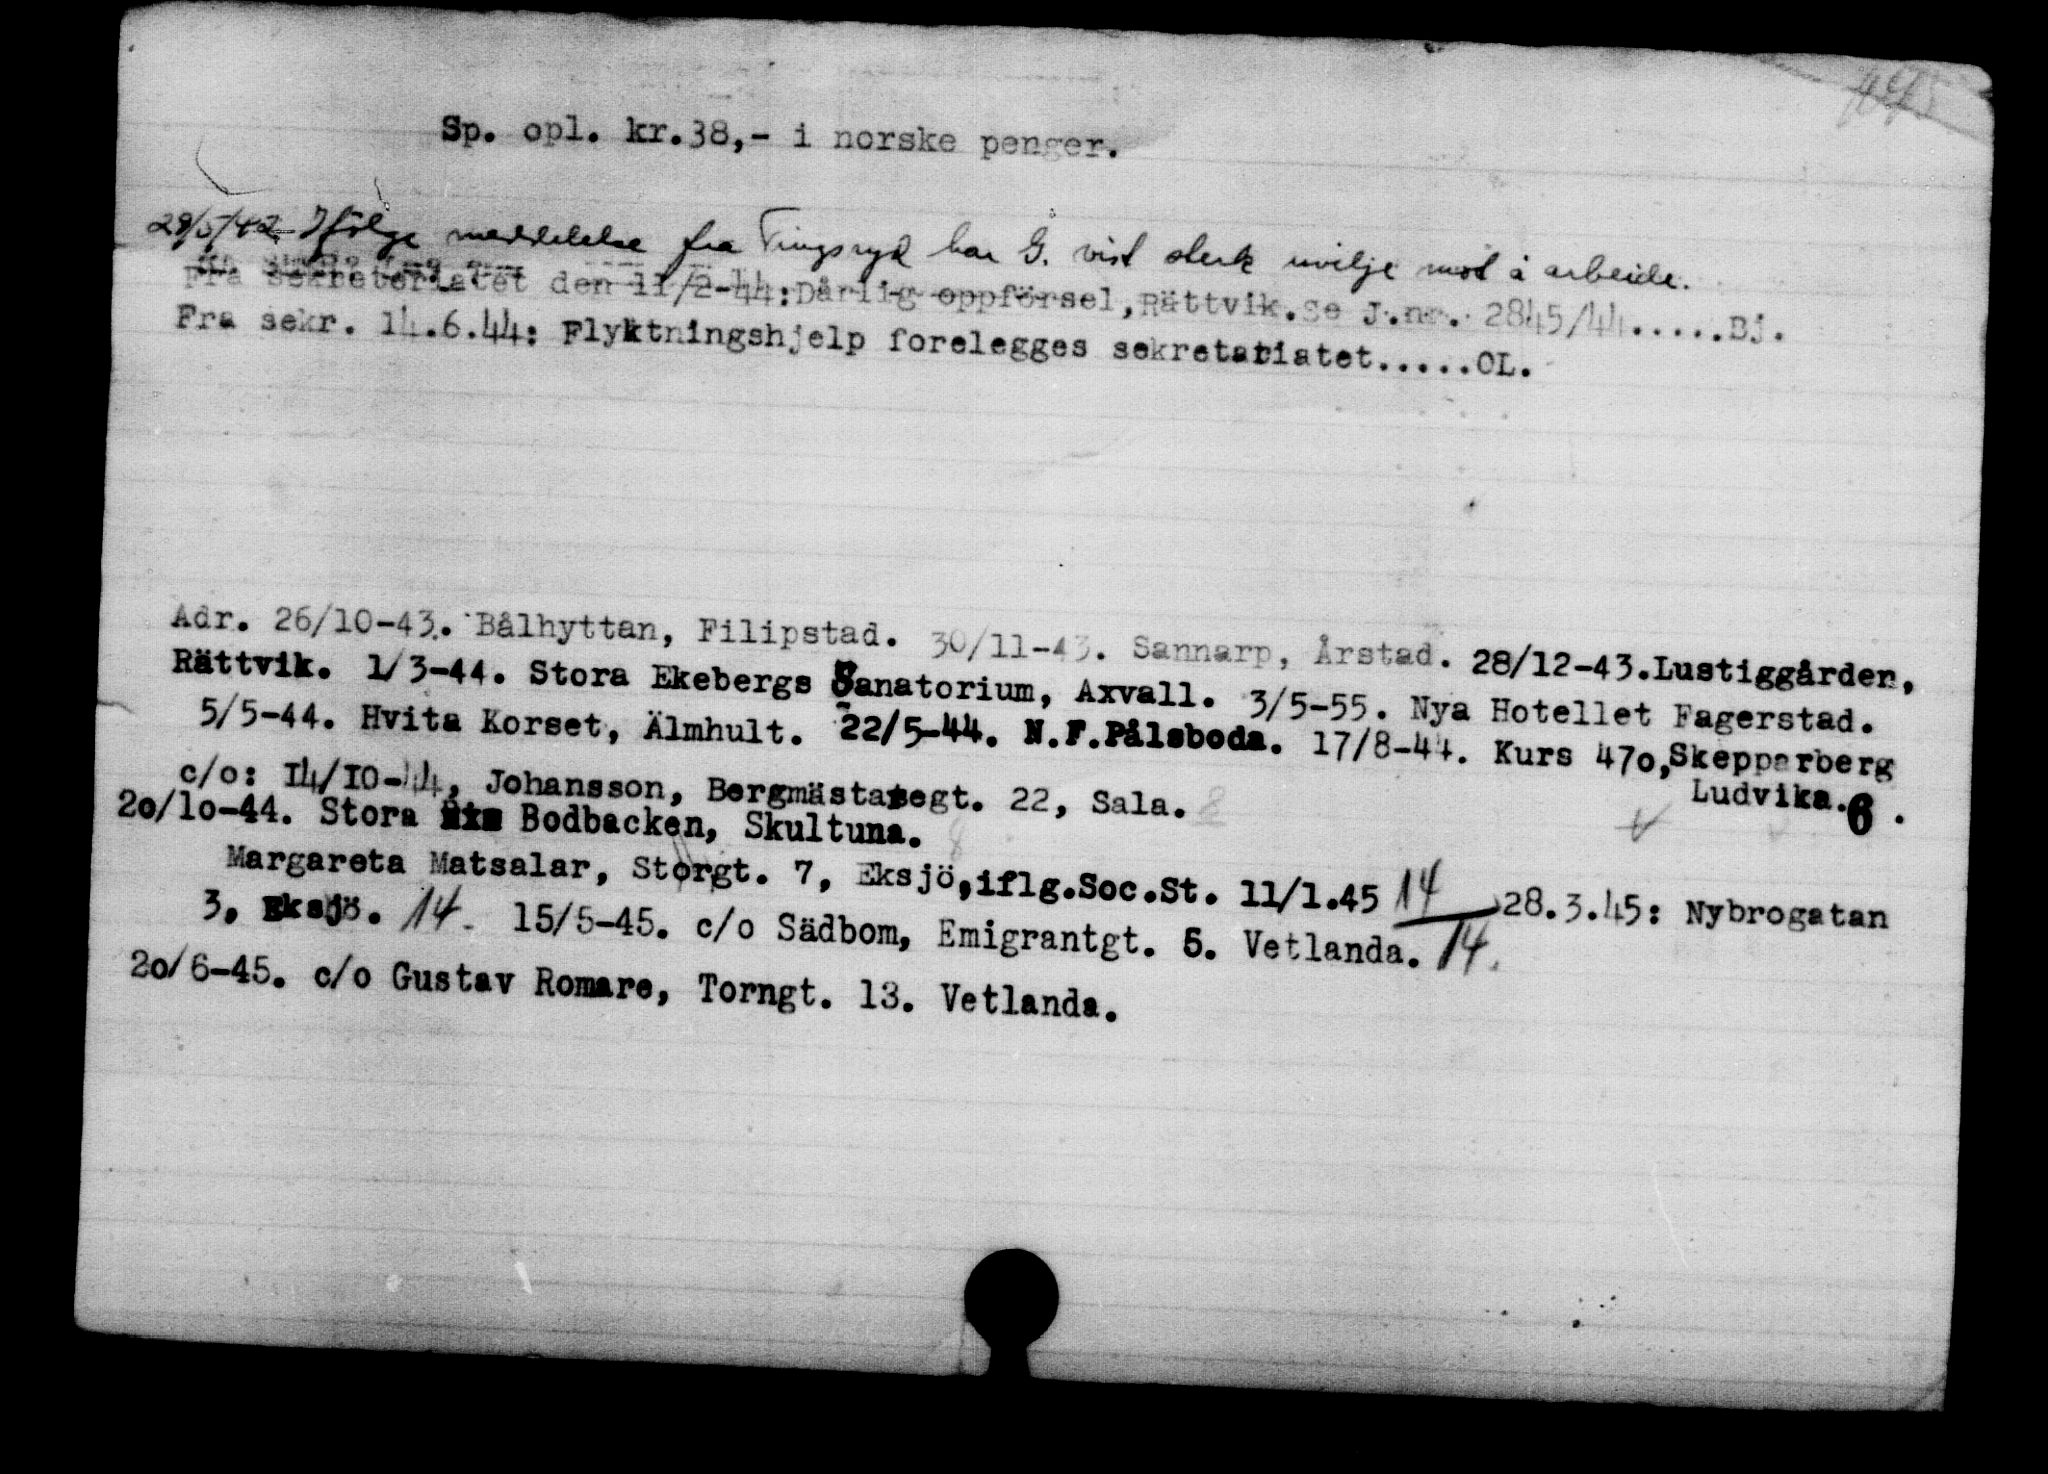 Sp. opl. kr.38,- i norske penger.
29/5/42 Ifølge meddelelse fra Tingsryd har G. vist sterk uvilje mot å arbeide.
Fra sekreteriatet den 11/2-44:Dårlig oppförsel,Rättvik.Se J.nr. 2845/44.....Bj.
Fra sekr. 14.6.44: Flyktningshjelp forelegges sekretariatet.....OL.
Adr. 26/10-43. Bålhyttan, Filipstad. 30/11-43. Sannarp, Årstad. 28/12-43.Lustiggården,
Rättvik. 1/3-44. Stora Ekebergs Sanatorium, Axvall. 3/5-55. Nya Hotellet Fagerstad.
5/5-44. Hvita Korset, Älmhult. 22/5-44. N.F.Pålsboda. 17/8-44. Kurs 47o,Skepparberg
Ludvika.6.
c/o: I4/IO-44, Johansson, Bergmästaregt. 22, Sala. 8
2o/1o-44. Stora Bodbacken, Skultuna.
Margareta Matsalar, Storgt. 7, Eksjö,iflg.Soc.St. 11/1.45 14 28.3.45: Nybrogatan
3, Eksjö. 14. 15/5-45. c/o Sädbom, Emigrantgt. 5. Vetlanda. 14.
2o/6-45. c/o Gustav Romare, Torngt. 13. Vetlanda.